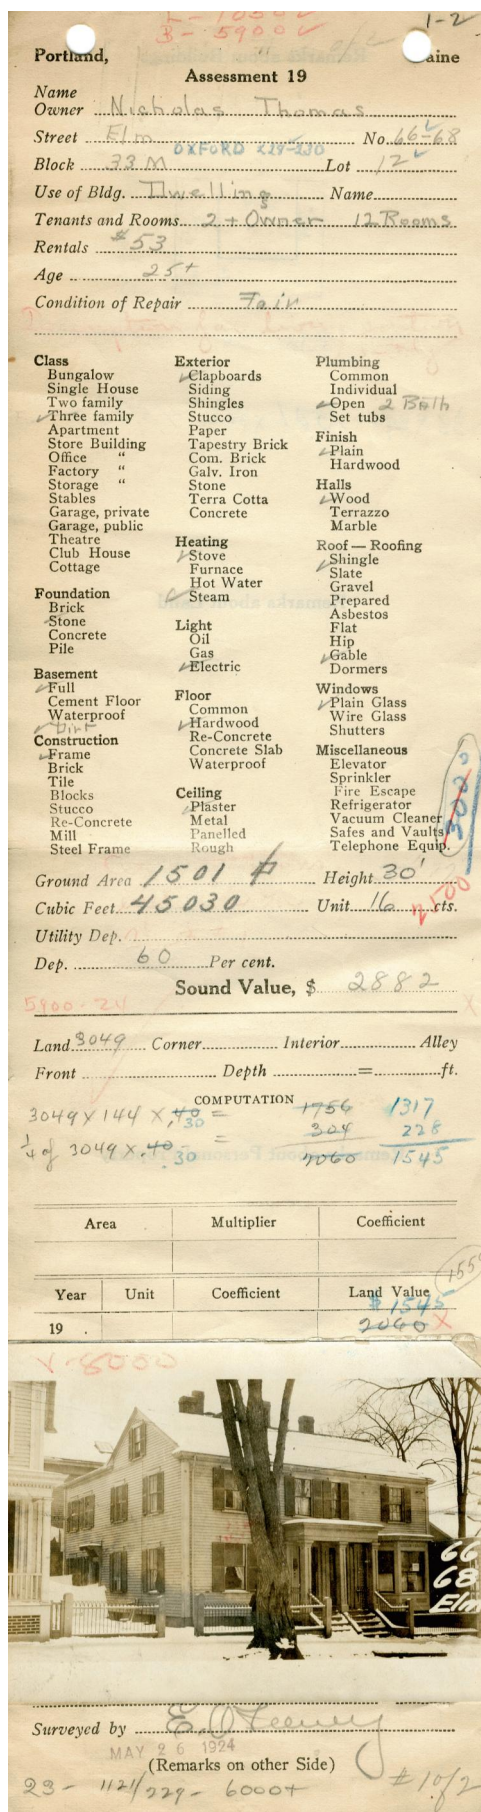 L - 1050
1-2
B - 5900
Portland, aine
Assessment 19
Name
Owner Nicholas Thomas
Street Elm No. 66-68
OXFORD 229-230
Block 33 M Lot 12
Use of Bldg. Dwelling Name
Tenants and Rooms 2 + Owner 12 Rooms
Rentals $53
Age 25+
Condition of Repair Fair
Class
Bungalow
Single House
Two family
Three family
Apartment
Store Building
Office "
Factory "
Storage "
Stables
Garage, private
Garage, public
Theatre
Club House
Cottage
Foundation
Brick
Stone
Concrete
Pile
Basement
Full
Cement Floor
Waterproof
Dirt
Construction
Frame
Brick
Tile
Blocks
Stucco
Re-Concrete
Mill
Steel Frame
Exterior
Clapboards
Siding
Shingles
Stucco
Paper
Tapestry Brick
Com. Brick
Galv. Iron
Stone
Terra Cotta
Concrete
Heating
Stove
Furnace
Hot Water
Steam
Light
Oil
Gas
Electric
Floor
Common
Hardwood
Re-Concrete
Concrete Slab
Waterproof
Ceiling
Plaster
Metal
Panelled
Rough
Plumbing
Common
Individual
Open 2 Bath
Set tubs
Finish
Plain
Hardwood
Halls
Wood
Terrazzo
Marble
Roof — Roofing
Shingle
Slate
Gravel
Prepared
Asbestos
Flat
Hip
Gable
Dormers
Windows
Plain Glass
Wire Glass
Shutters
Miscellaneous
Elevator
Sprinkler
Fire Escape
Refrigerator
Vacuum Cleaner
Safes and Vaults
Telephone Equip.
3000
Ground Area 1501 Height 30'
Cubic Feet 45030 Unit 16 cts.
Utility Dep.
Dep. 60 Per cent.
Sound Value, $ 2882
5900-24
Land 3049 Corner Interior Alley
Front Depth = ft.
COMPUTATION
3049 x 144 x .40 = 1756 1317
30
304 228
1/4 of 3049 x .40 = 2060 1545
.30
Area Multiplier Coefficient
1550
Year Unit Coefficient Land Value
$1545
19 . 2060 X
V-8000
66
68
Elm
Surveyed by E. O Feeney
MAY 26 1924
(Remarks on other Side)
#1 of 2
23 - 1121/229 - 6000+